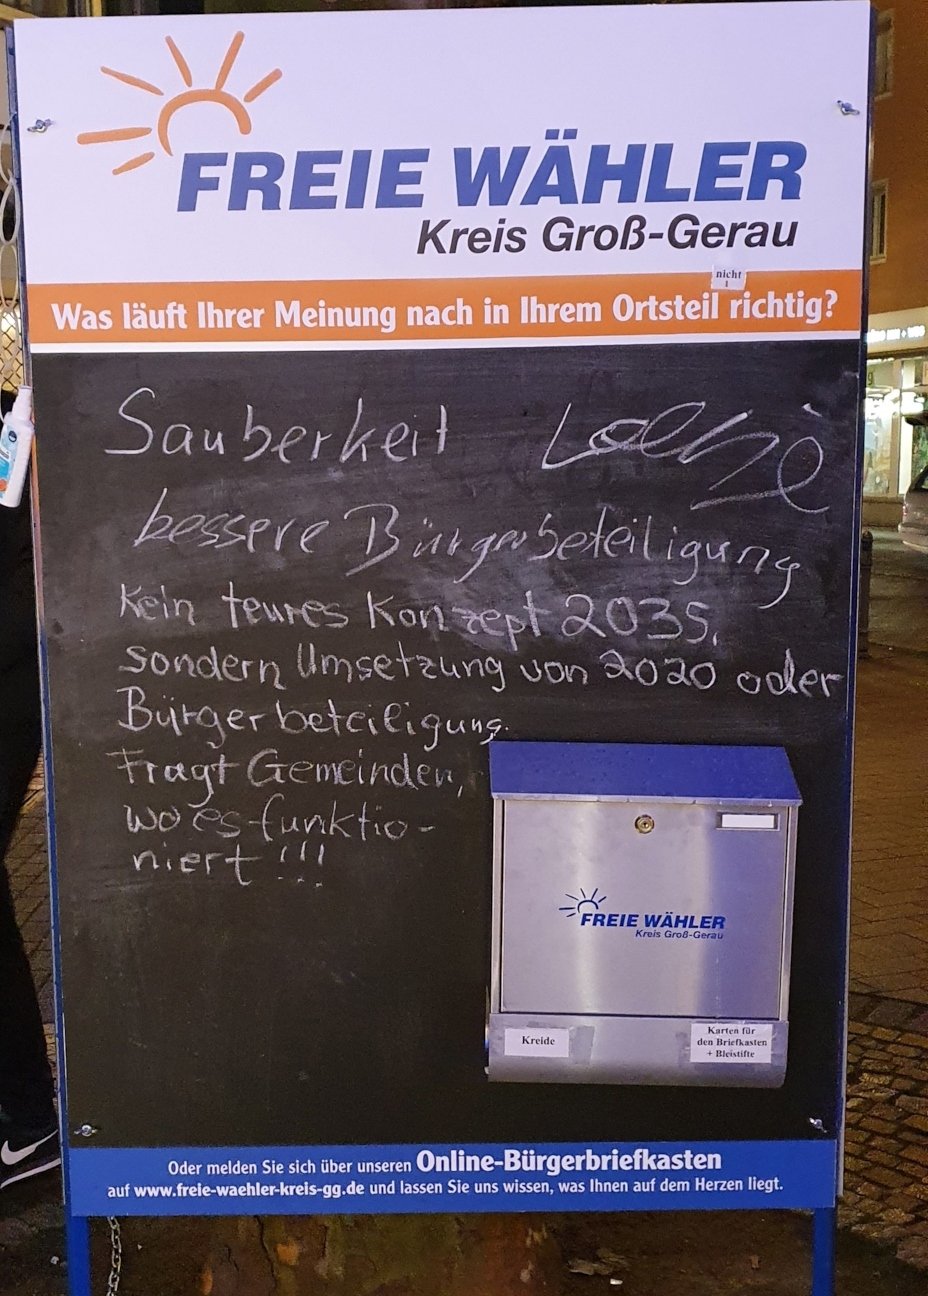 FREIE WÄHLER
Kreis Groß-Gerau
nicht
Was läuft Ihrer Meinung nach in Ihrem Ortsteil richtig?
Sauberkeit
bessere Bürgerbeteiligung
Kein teures Konzept 2035,
sondern Umsetzung von 2020 oder
Bürgerbeteiligung.
Fragt Gemeinden,
wo es funktio-
niert!!!
FREIE WÄHLER
Kreis Groß-Gerau
Kreide
Karten für
den Briefkasten
+ Bleistifte
Oder melden Sie sich über unseren Online-Bürgerbriefkasten
auf www.freie-waehler-kreis-gg.de und lassen Sie uns wissen, was Ihnen auf dem Herzen liegt.